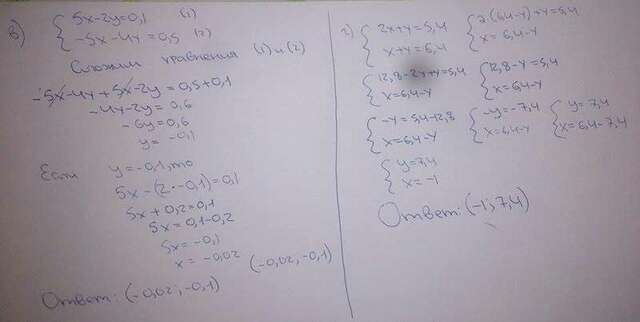 в) { 5x-2y=0,1 (1)
{ -5x-4y=0,5 (2)
Сложим уравнения (1) и (2)
-5x-4y+5x-2y=0,5+0,1
-4y-2y=0,6
-6y=0,6
y=-0,1
Если y=-0,1, то
5x-(2·-0,1)=0,1
5x+0,2=0,1
5x=0,1-0,2
5x=-0,1
x=-0,02 (-0,02; -0,1)
Ответ: (-0,02; -0,1)
г) { 2x+y=5,4 { 2(6,4-y)+y=5,4
{ x+y=6,4 { x=6,4-y
{ 12,8-2y+y=5,4 { 12,8-y=5,4
{ x=6,4-y { x=6,4-y
{ -y=5,4-12,8 { -y=-7,4 { y=7,4
{ x=6,4-y { x=6,4-y { x=6,4-7,4
{ y=7,4
{ x=-1
Ответ: (-1; 7,4)